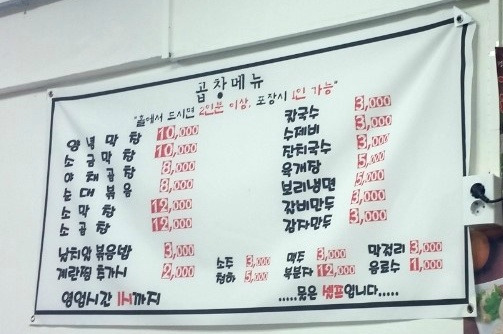 곱창메뉴
"홀에서 드시면 2인분 이상, 포장시 1인 가능"
양념막창 10,000
소금막창 10,000
야채곱창 8,000
순대볶음 8,000
소막창 12,000
소곱창 12,000
날치알볶음밥 3,000
계란찜 추가시 2,000
칼국수 3,000
수제비 3,000
잔치국수 3,000
육개장 5,000
보리냉면 5,000
갈비만두 3,000
감자만두 3,000
소주 3,000
청하 5,000
맥주 3,000
복분자 12,000
막걸리 3,000
음료수 1,000
영업시간 까지
.....물은 셀프입니다.....